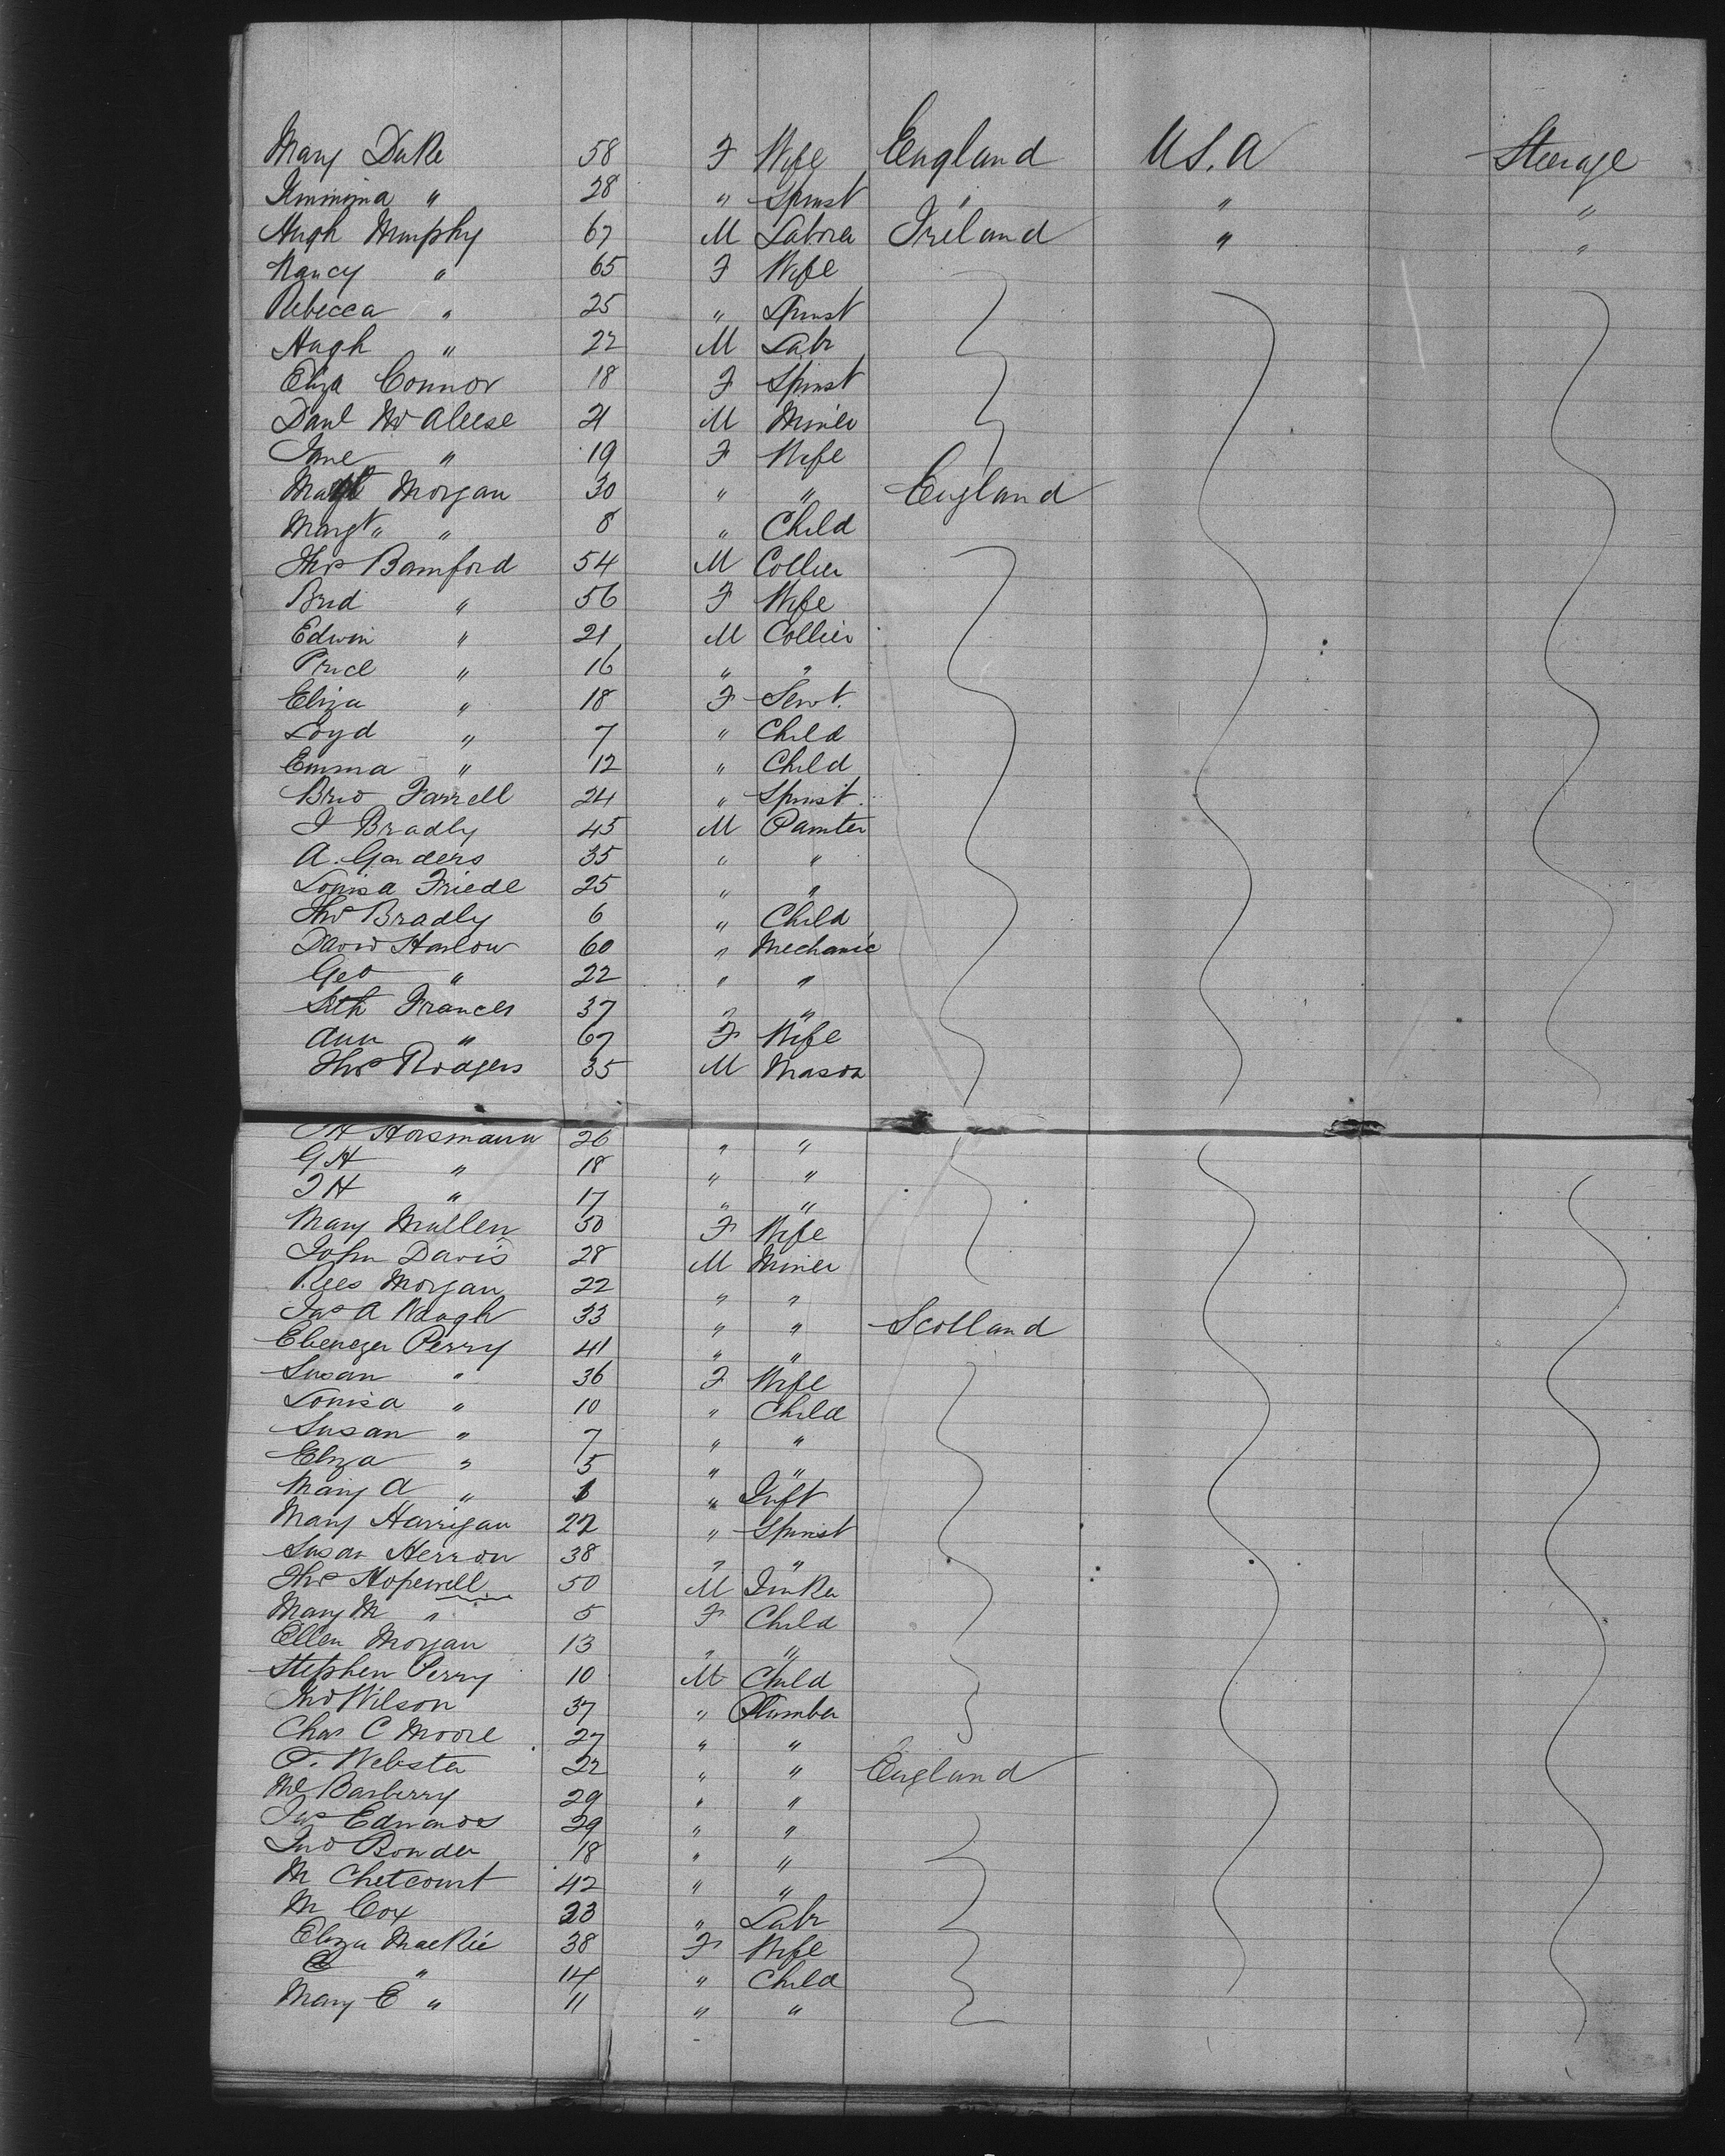 Mary Duke 58 F Wife England U.S.A Steerage
Jemmima " 28 " Spinst " " "
Hugh Murphy 67 M Labora Ireland " "
Nancy " 65 F Wife
Rebecca " 25 " Spinst
Hugh " 22 M Labr
Eliza Connor 18 F Spinst
Danl Mc Aleese 21 M Miner
Jane " 19 F Wife
Margt Morgan 30 " " England
Margt " " 8 " Child
Thos Bamford 54 M Collier
Brid " 56 F Wife
Edwin " 21 M Collier
Price " 16 " "
Eliza " 18 F Servt.
Loyd " 7 " Child
Emma " 12 " Child
Brid Farrell 24 " Spinst.
J Bradly 45 M Painter
A. Ganders 35 " "
Louisa Friede 25 " "
Thos Bradly 6 " Child
David Harlow 60 " Mechanic
Geo " 22 " "
Seth Frances 37 " "
Ann " 67 F Wife
Thos Rodgers 35 M Mason
Horsmann 26 " "
G H " 18 " "
J H " 17 " "
Mary Mullen 50 F Wife
John Davis 28 M Miner
Rees Morgan 22 " "
Jas A Waugh 33 " " Scotland
Ebenezer Perry 41 " "
Susan " 36 F Wife
Louisa " 10 " Child
Susan " 7 " "
Eliza " 5 " "
Mary A " 1 " Inft
Mary Harrigan 22 " Spinst
Susan Herron 38 " "
Thos Hopewell 50 M Tinker
Mary M " 5 F Child
Ellen Morgan 13 " "
Stephen Perry 10 M Child
Jno Wilson 37 " Plumber
Chas C Moore 27 " "
T. Webster 22 " " England
Barberry 29 " "
Jas Edwards 29 " "
Jno Bonder 18 " "
M Chetcourt 42 " "
M Cox 23 " Labr
Eliza MacKie 38 F Wife
C " 14 " Child
Mary E " 11 " "